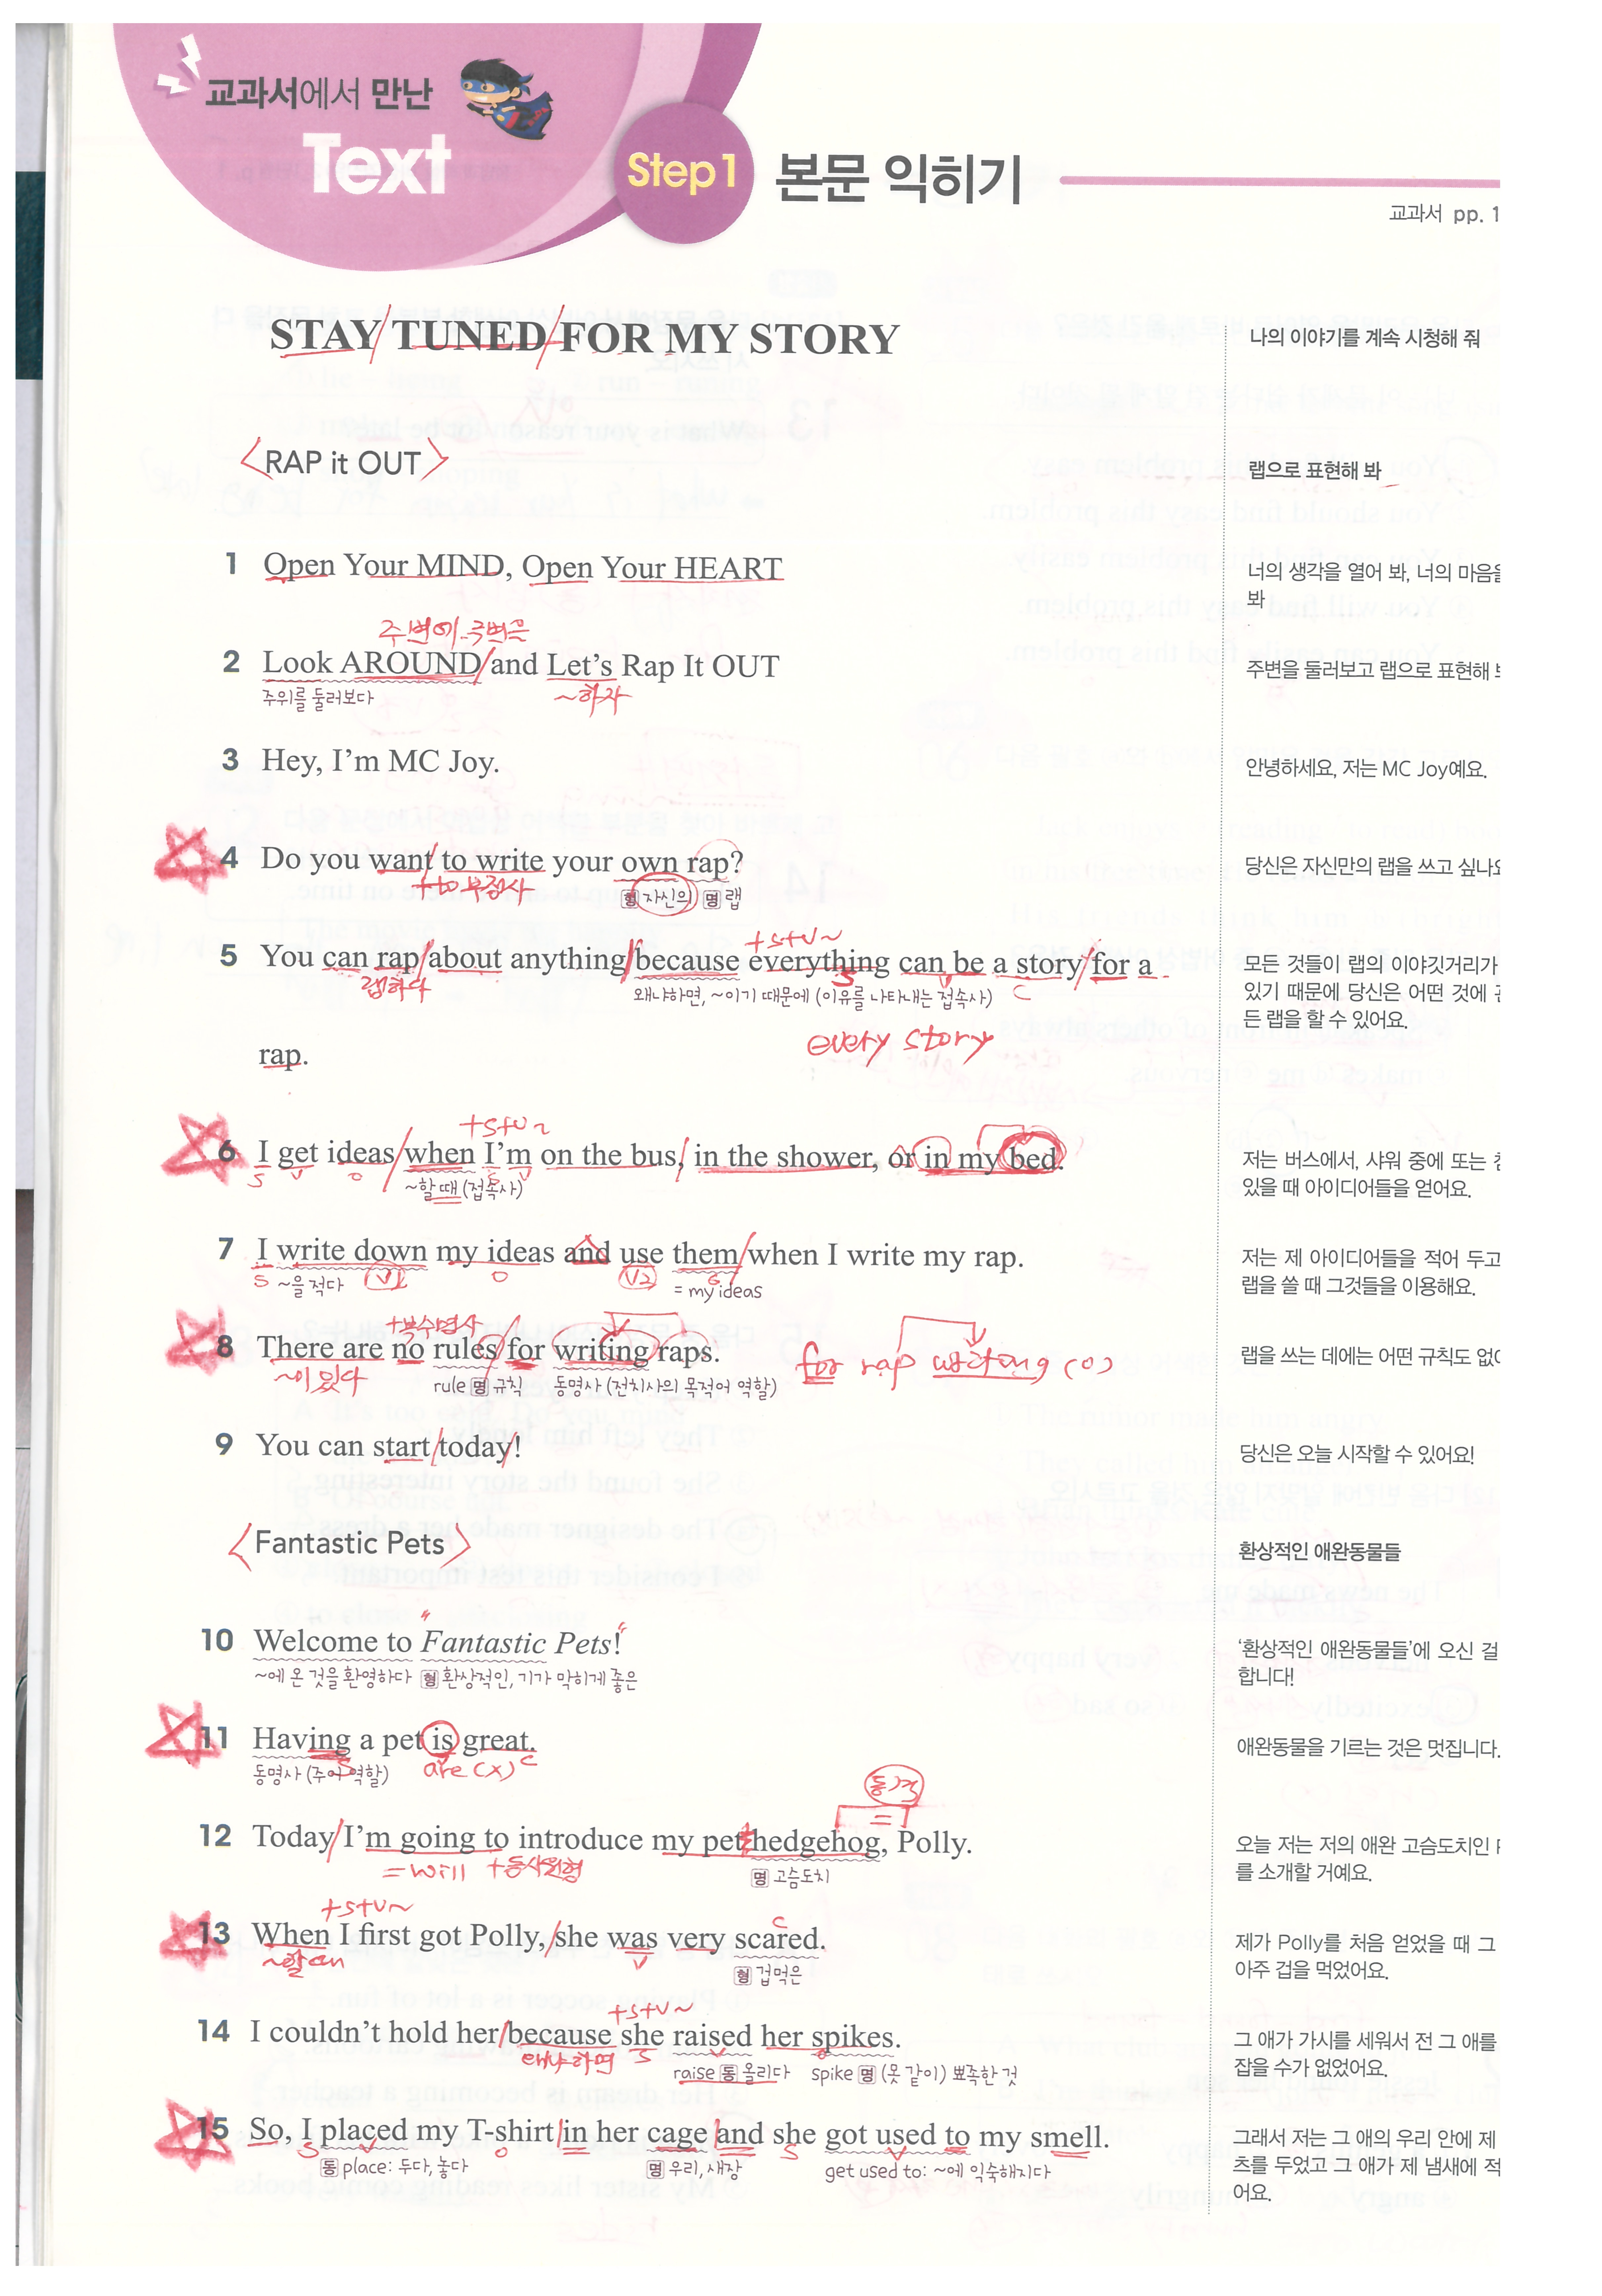 교과서에서 만난
Text
Step1 본문 익히기
교과서 pp. 1
STAY/TUNED/FOR MY STORY
나의 이야기를 계속 시청해 줘
<RAP it OUT>
랩으로 표현해 봐
1 Open Your MIND, Open Your HEART
너의 생각을 열어 봐, 너의 마음을
봐
주변에, 주변을
2 Look AROUND/and Let's Rap It OUT
주위를 둘러보다
~하자
주변을 둘러보고 랩으로 표현해
3 Hey, I'm MC Joy.
안녕하세요, 저는 MC Joy예요.
4 Do you want/to write your own rap?
+to부정사
형 자신의 명 랩
당신은 자신만의 랩을 쓰고 싶나요
+S+V~
5 You can rap/about anything/because everything can be a story/for a
랩하다
S V C
왜냐하면, ~이기 때문에 (이유를 나타내는 접속사)
every story
rap.
모든 것들이 랩의 이야깃거리가
있기 때문에 당신은 어떤 것에
든 랩을 할 수 있어요.
+S+V~
6 I get ideas/when I'm on the bus, in the shower, or in my bed.
S V O S V
~할 때 (접속사)
저는 버스에서, 샤워 중에 또는
있을 때 아이디어들을 얻어요.
7 I write down my ideas and use them/when I write my rap.
S ~을 적다 V1 O V2 O
= my ideas
저는 제 아이디어들을 적어 두고
랩을 쓸 때 그것들을 이용해요.
+복수명사
8 There are no rules/for writing raps.
~이 있다
rule 명 규칙 동명사 (전치사의 목적어 역할)
for rap writing (O)
랩을 쓰는 데에는 어떤 규칙도 없어
9 You can start/today!
당신은 오늘 시작할 수 있어요!
<Fantastic Pets>
환상적인 애완동물들
10 Welcome to "Fantastic Pets!"
~에 온 것을 환영하다 형 환상적인, 기가 막히게 좋은
'환상적인 애완동물들'에 오신 걸
합니다!
11 Having a pet is great.
동명사 (주어 역할)
S are (X) C
애완동물을 기르는 것은 멋집니다.
동격
=
12 Today/I'm going to introduce my pet hedgehog, Polly.
= will +동사원형
명 고슴도치
오늘 저는 저의 애완 고슴도치인
를 소개할 거예요.
+S+V~
13 When I first got Polly,/she was very scared.
~할 때
V C
형 겁먹은
제가 Polly를 처음 얻었을 때 그
아주 겁을 먹었어요.
+S+V~
14 I couldn't hold her/because she raised her spikes.
왜냐하면 S V O
raise 동 올리다 spike 명 (못 같이) 뾰족한 것
그 애가 가시를 세워서 전 그 애를
잡을 수가 없었어요.
15 So, I placed my T-shirt/in her cage/and she got used to my smell.
S V O S V
동 place: 두다, 놓다 명 우리, 새장 get used to: ~에 익숙해지다
그래서 저는 그 애의 우리 안에 제
츠를 두었고 그 애가 제 냄새에
어요.